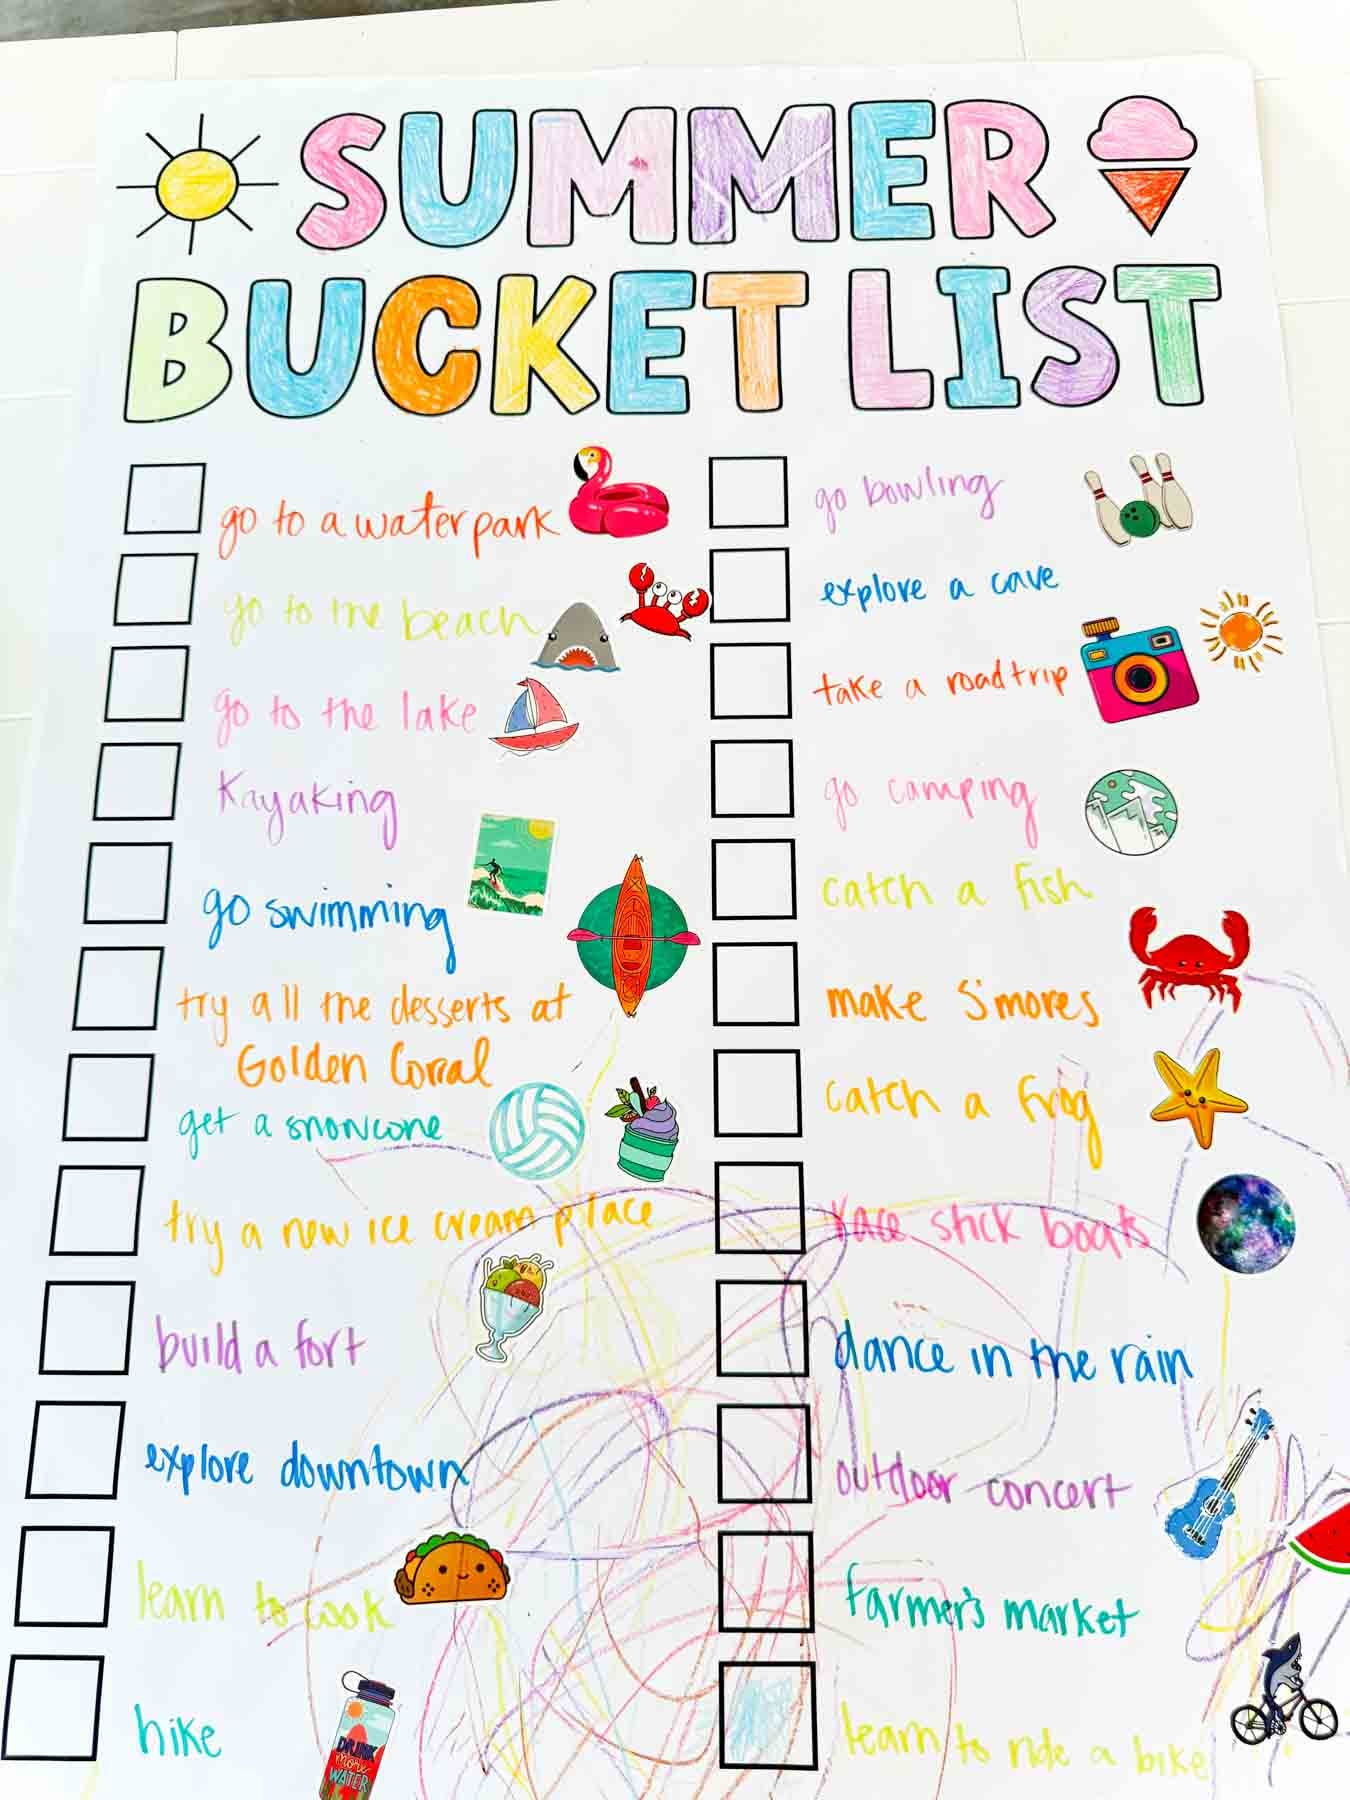 SUMMER
BUCKET LIST
go to a waterpark
go to the beach
go to the lake
Kayaking
go swimming
try all the desserts at
Golden Corral
get a snowcone
try a new ice cream place
build a fort
explore downtown
learn to cook
hike
DRINK
more
WATER
go bowling
explore a cave
take a roadtrip
go camping
catch a fish
make S'mores
catch a frog
race stick boats
dance in the rain
outdoor concert
farmer's market
learn to ride a bike